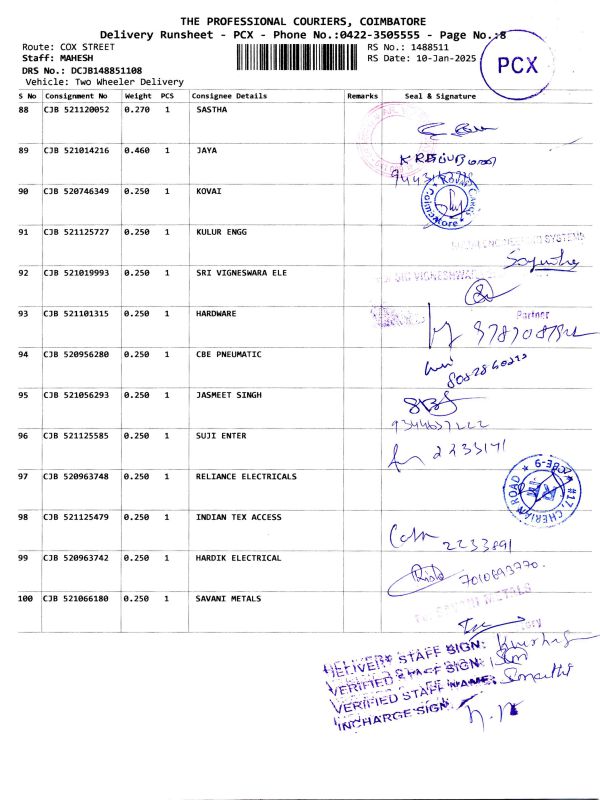 THE PROFESSIONAL COURIERS, COIMBATORE
Delivery Runsheet - PCX - Phone No.:0422-3505555 - Page No.:8
Route: COX STREET RS No.: 1488511
Staff: MAHESH RS Date: 10-Jan-2025
PCX
DRS No.: DCJB148851108
Vehicle: Two Wheeler Delivery
S No Consignment No Weight PCS Consignee Details Remarks Seal & Signature
88 CJB 521120052 0.270 1 SASTHA
89 CJB 521014216 0.460 1 JAYA
90 CJB 520746349 0.250 1 KOVAI
91 CJB 521125727 0.250 1 KULUR ENGG
92 CJB 521019993 0.250 1 SRI VIGNESWARA ELE
93 CJB 521101315 0.250 1 HARDWARE
Partner
94 CJB 520956280 0.250 1 CBE PNEUMATIC
95 CJB 521056293 0.250 1 JASMEET SINGH
96 CJB 521125585 0.250 1 SUJI ENTER
2233171
97 CJB 520963748 0.250 1 RELIANCE ELECTRICALS
#17, CHERIAN ROAD
98 CJB 521125479 0.250 1 INDIAN TEX ACCESS
2233891
99 CJB 520963742 0.250 1 HARDIK ELECTRICAL
7010693770.
100 CJB 521066180 0.250 1 SAVANI METALS
SAVANI METALS
DELIVERY STAFF SIGN:
VERIFIED STAFF SIGN:
VERIFIED STAFF NAME:
INCHARGE SIGN